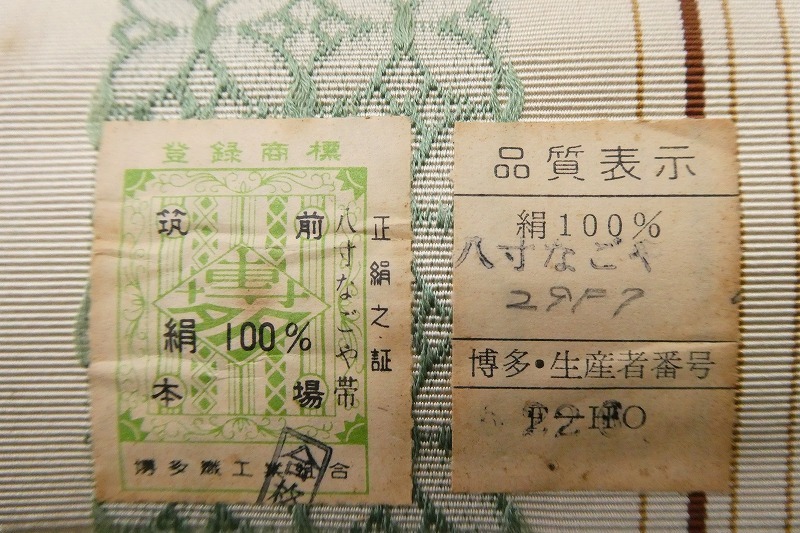 登録商標
筑前
博多
絹100%
本場
八寸なごや帯
正絹之証
博多織工業組合
合格
品質表示
絹100%
八寸なごや
博多・生産者番号